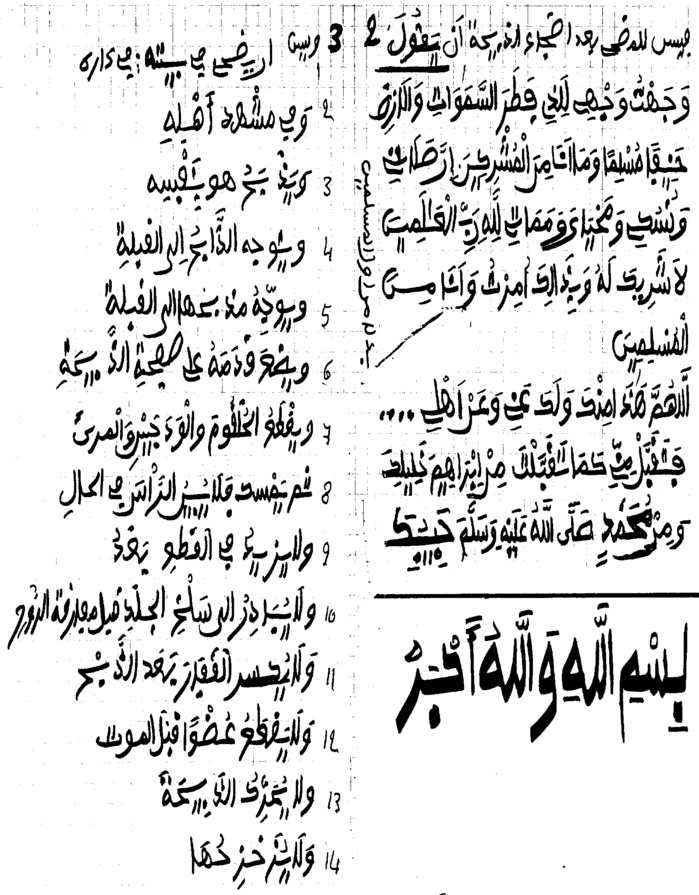 2 فيسن للمضحي بعد اضجاع الذبيحة أن يَقُولَ
وَجَّهْتُ وَجْهِيَ لِلَّذِي فَطَرَ السَّمَوَاتِ وَالْأَرْضَ
حَنِيفًا مُسْلِمًا وَمَا أَنَا مِنَ الْمُشْرِكِينَ إِنَّ صَلَاتِي
وَنُسُكِي وَمَحْيَايَ وَمَمَاتِي لِلَّهِ رَبِّ الْعَالَمِينَ
لَا شَرِيكَ لَهُ وَبِذَالِكَ أُمِرْتُ وَأَنَا مِنَ
الْمُسْلِمِينَ
اللَّهُمَّ هَذَا مِنْكَ وَلَكَ عَنِّي وَعَنْ أَهْلِي ....
فَتَقَبَّلْ مِنِّي كَمَا تَقَبَّلْتَ مِنْ إِبْرَاهِيمَ خَلِيلِكَ
وَمِنْ مُحَمَّدٍ صَلَّى اللَّهُ عَلَيْهِ وَسَلَّمَ حَبِيبِكَ
بِسْمِ اللَّهِ وَاللَّهُ أَكْبَرُ
بدل من أول المسلمين
3 ويسن أن يضحي في بيته: في داره
2 وَفِي مشْهد أَهْلِهِ
3 ويذبح هو بنَفْسِه
4 ويتوجه الذَّابح إلى القبلةِ
5 ويوجِّهُ مذبحها إلى القبلة
6 ويضع قَدَمَهُ على صفحة الذَّبيحَةِ
7 ويقطع الحُلْقُوم والْوَدَجَيْنِ والمرئ
8 ثم يمسك فلا يبين الرَّأس في الحال
9 ولا يزيدُ في القطع بَعْدُ
10 ولا يُبَادِرُ إلى سَلْخِ الجلد قبل مفارقة الرّوح
11 وَلَا يُكسر الفَقَارَ بَعد الذَّبح
12 وَلَا يَقطعُ عُضْوًا قبل الموت
13 ولا يُحَرِّك الذَّبِيحَةَ